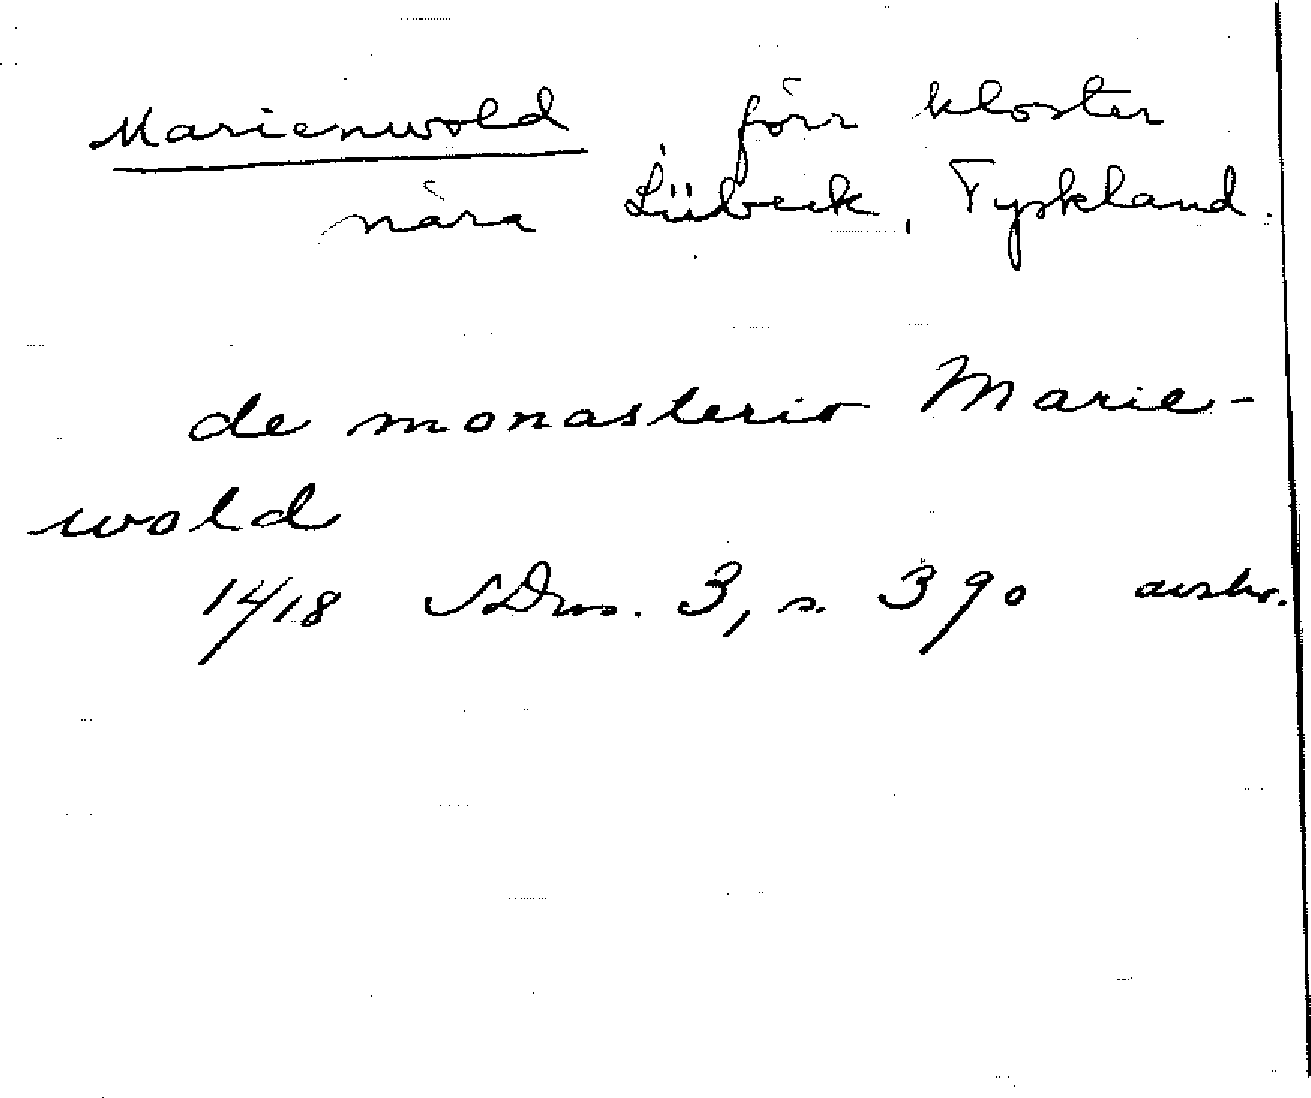 Marienwold, förr kloster
nära Lübeck, Tyskland.
de monasterio Marie-
wold
14/18 SDns. 3, s. 390 avskr.